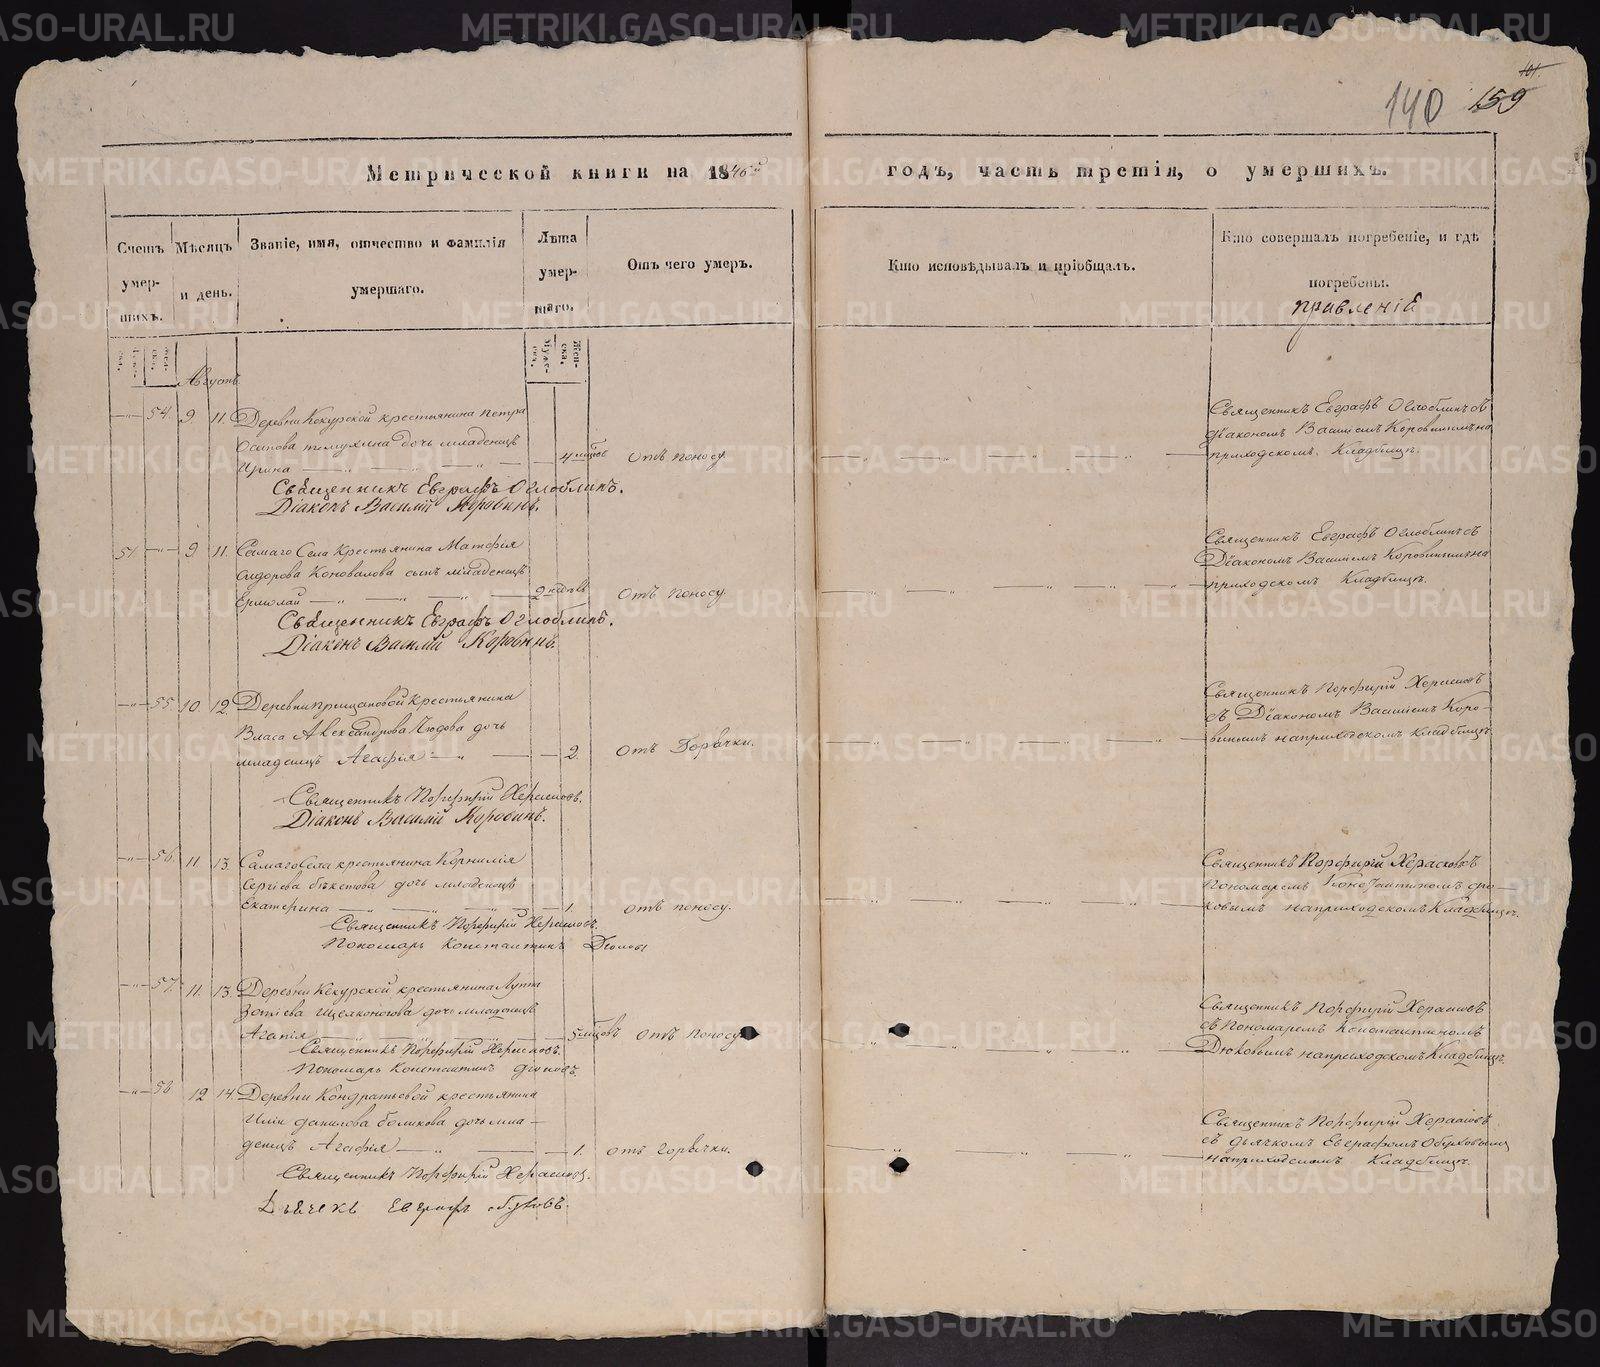 101.
140 159
Метрической книги на 1846й годъ, часть третія, о умершихъ.
Счетъ умершихъ.
Мѣсяцъ и день.
Званіе, имя, отчество и фамилія умершаго.
Лѣта умершаго.
Отъ чего умеръ.
Кто исповѣдывалъ и пріобщалъ.
Кто совершалъ погребеніе, и гдѣ погребены.
Августъ
54. 9 11. Деревни Кокурской крестьянина Петра
Осипова дочь младенецъ
Ирина 4 мѣсцов Отъ поносу.
Священникъ Евграфъ Оглоблинъ съ
Діакономъ Василіемъ Коровинымъ на
приходскомъ Кладбищѣ.
Священникъ Евграфъ Оглоблинъ.
Діаконъ Василій Коровинъ.
51 9 11. Самаго Села Крестьянина Матфія
Сидорова Коновалова сынъ младенецъ
Ермолай 2 недѣль Отъ поносу.
Священникъ Евграфъ Оглоблинъ съ
Діакономъ Василіемъ Коровинымъ на
приходскомъ Кладбищѣ.
Священникъ Евграфъ Оглоблинъ.
Діаконъ Василій Коровинъ.
55 10 12. Деревни Прищановой Крестьянина
Власа Александрова Чюдова дочь
младенецъ Агафія 2. Отъ Горячки.
Священникъ Порфирій Херасковъ
съ Діакономъ Василіемъ Коро-
винымъ на приходскомъ Кладбищѣ.
Священникъ Порфирій Херасковъ.
Діаконъ Василій Коровинъ.
56 11 13. Самаго Села крестьянина Корнилія
Сергіева Бѣкетова дочь младенецъ
Екатерина 1. отъ поносу.
Священникъ Порфирій Херасковъ
Пономаремъ Константиномъ Дю-
ковымъ на приходскомъ Кладбищѣ.
Священникъ Порфирій Херасковъ.
Пономарь Константинъ Дюковъ
57. 11. 13. Деревни Кекурской крестьянина Луппа
Зотіева Щелконогова дочь младенецъ
Агапія 5 мѣсцовъ отъ поносу
Священникъ Порфирій Херасковъ
съ Пономаремъ Константиномъ
Дюковымъ на приходскомъ Кладбищѣ.
Священникъ Порфирій Херасковъ.
Пономарь Константинъ Дюковъ.
58 12 14. Деревни Кондратьевой крестьянина
Иліи Данилова дочь мла-
денецъ Агафія 1. отъ горячки.
Священникъ Порфирій Херасковъ
съ Дьячкомъ Евграфомъ
на приходскомъ Кладбищѣ.
Священникъ Порфирій Херасковъ.
Дьячекъ Евграфъ
METRIKI.GASO-URAL.RU